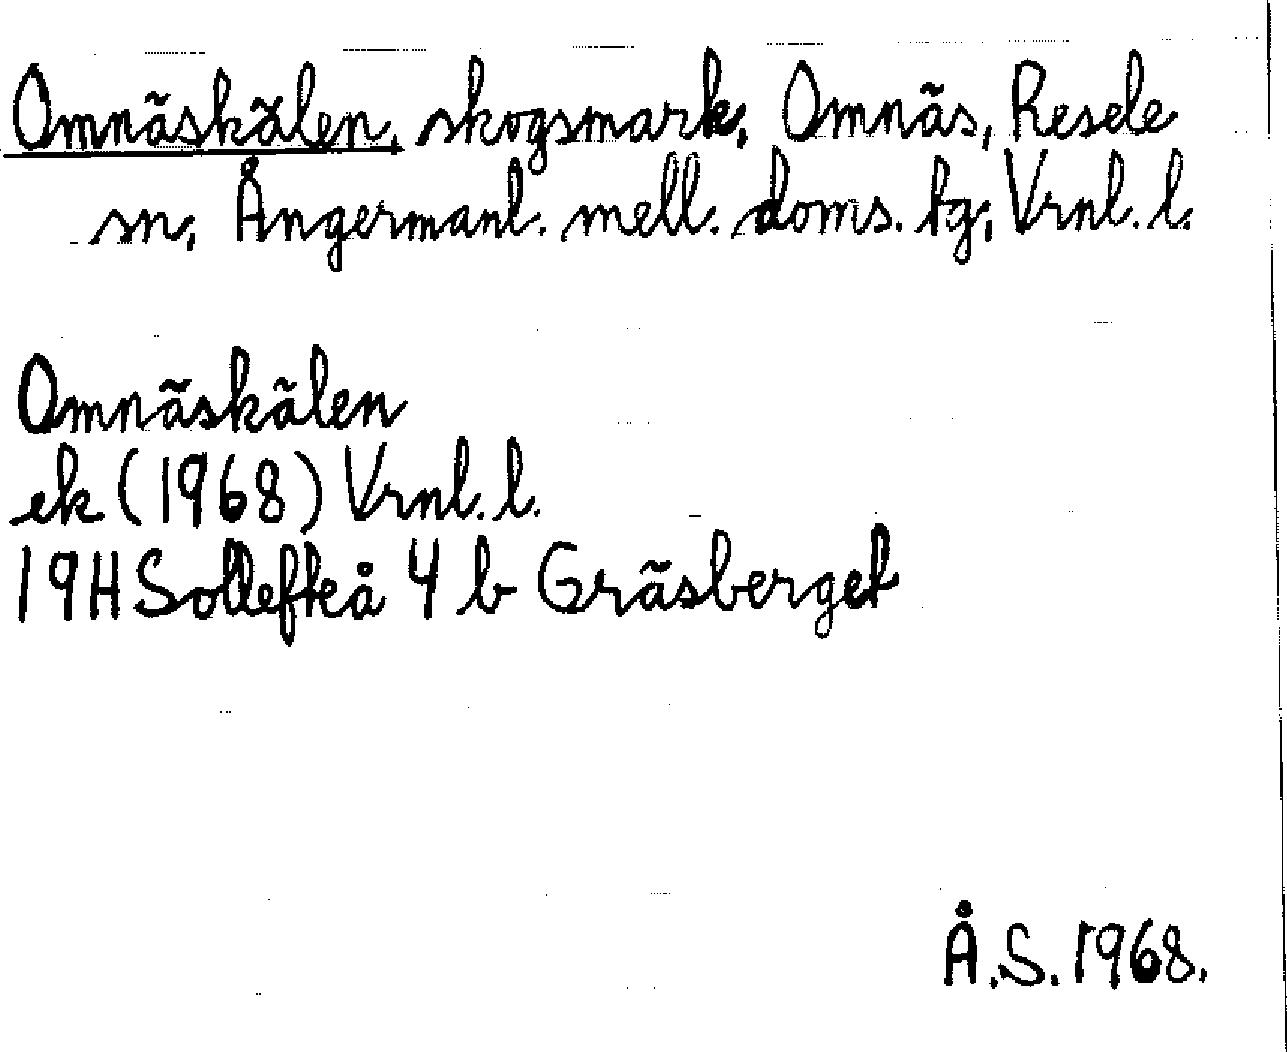 Omnäskälen, skogsmark, Omnäs, Resele
sn, Ångermanl. mell. doms. tg, Vrnl. l.
Omnäskälen
ek (1968) Vrnl. l.
19H Sollefteå 4 b Gräsberget
Å.S. 1968.